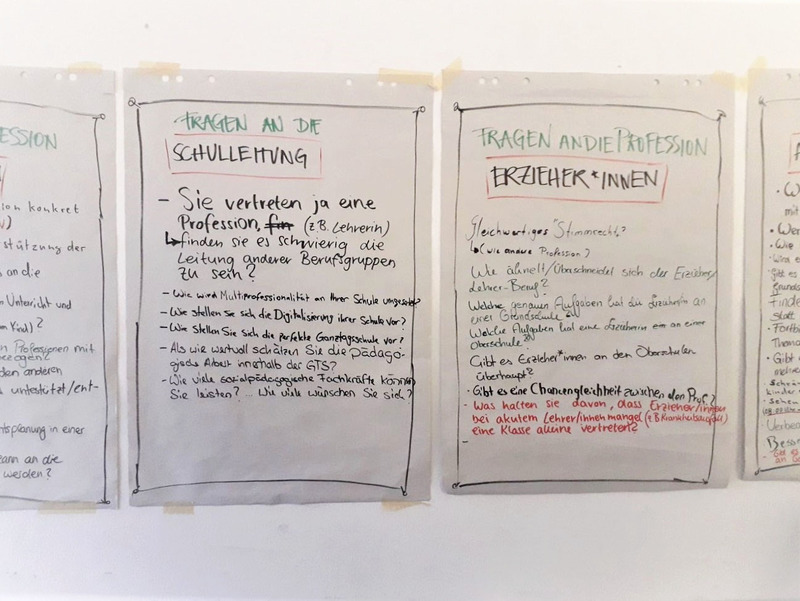 ESSION
sion konkret
stützung der
an die
Unterricht und
Professionen mit
den anderen
unterstützt/ent-
tsplanung in einer
ann an die
werden?
FRAGEN AN DIE
SCHULLEITUNG
- Sie vertreten ja eine
Profession, (z.B. Lehrerin)
↳ finden sie es schwierig die
Leitung anderer Berufsgruppen
zu sein?
- Wie wird Multiprofessionalität an Ihrer Schule umgesetzt?
- Wie stellen Sie sich die Digitalisierung ihrer Schule vor?
- Wie stellen Sie sich die perfekte Ganztagsschule vor?
- Als wie wertvoll schätzen Sie die Pädago-
gische Arbeit innerhalb der GTS?
- Wie viele sozialpädagogische Fachkräfte können
Sie leisten? ... Wie viele wünschen Sie sich?
FRAGEN AN DIE PROFESSION
ERZIEHER*INNEN
Gleichwertiges "Stimmrecht"?
↳ (wie andere Profession)
Wie ähnelt/Überschneidet sich der Erzieher/
Lehrer-Beruf?
Welche genauen Aufgaben hat die Erzieherin an
einer Grundschule?
Welche Aufgaben hat eine Erzieherin an einer
Oberschule?
Gibt es Erzieher*innen an den Oberschulen
überhaupt?
· Gibt es eine Chancengleichheit zwischen den Prof.?
- Was halten Sie davon, dass Erzieher/innen
bei akutem Lehrer/innenmangel (z.B. Krankheitsausfall)
eine Klasse alleine vertreten?
-